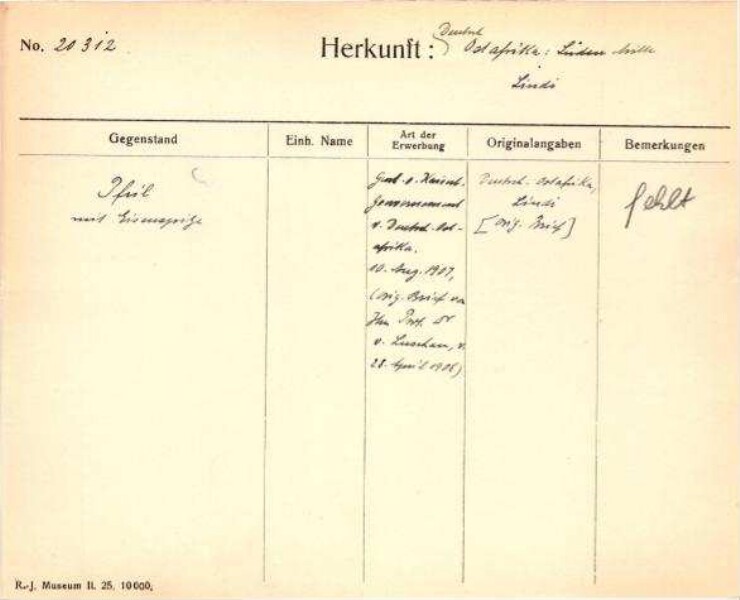 No. 20312
Herkunft: Deutsch
Ostafrika: Süden Mitte
Lindi
Gegenstand
Einh. Name
Art der Erwerbung
Originalangaben
Bemerkungen
Pfeil
mit Eisenspitze
v. Kaiserl.
Gouvernement
v. Deutsch-Ost-
afrika.
10. Aug. 1907,
(orig. Brief von
Hrn Prof. Dr
v. Luschan, v.
28. April 1908)
Deutsch-Ostafrika,
Lindi
[orig. Brief]
fehlt
R.-J. Museum II. 25. 10000.